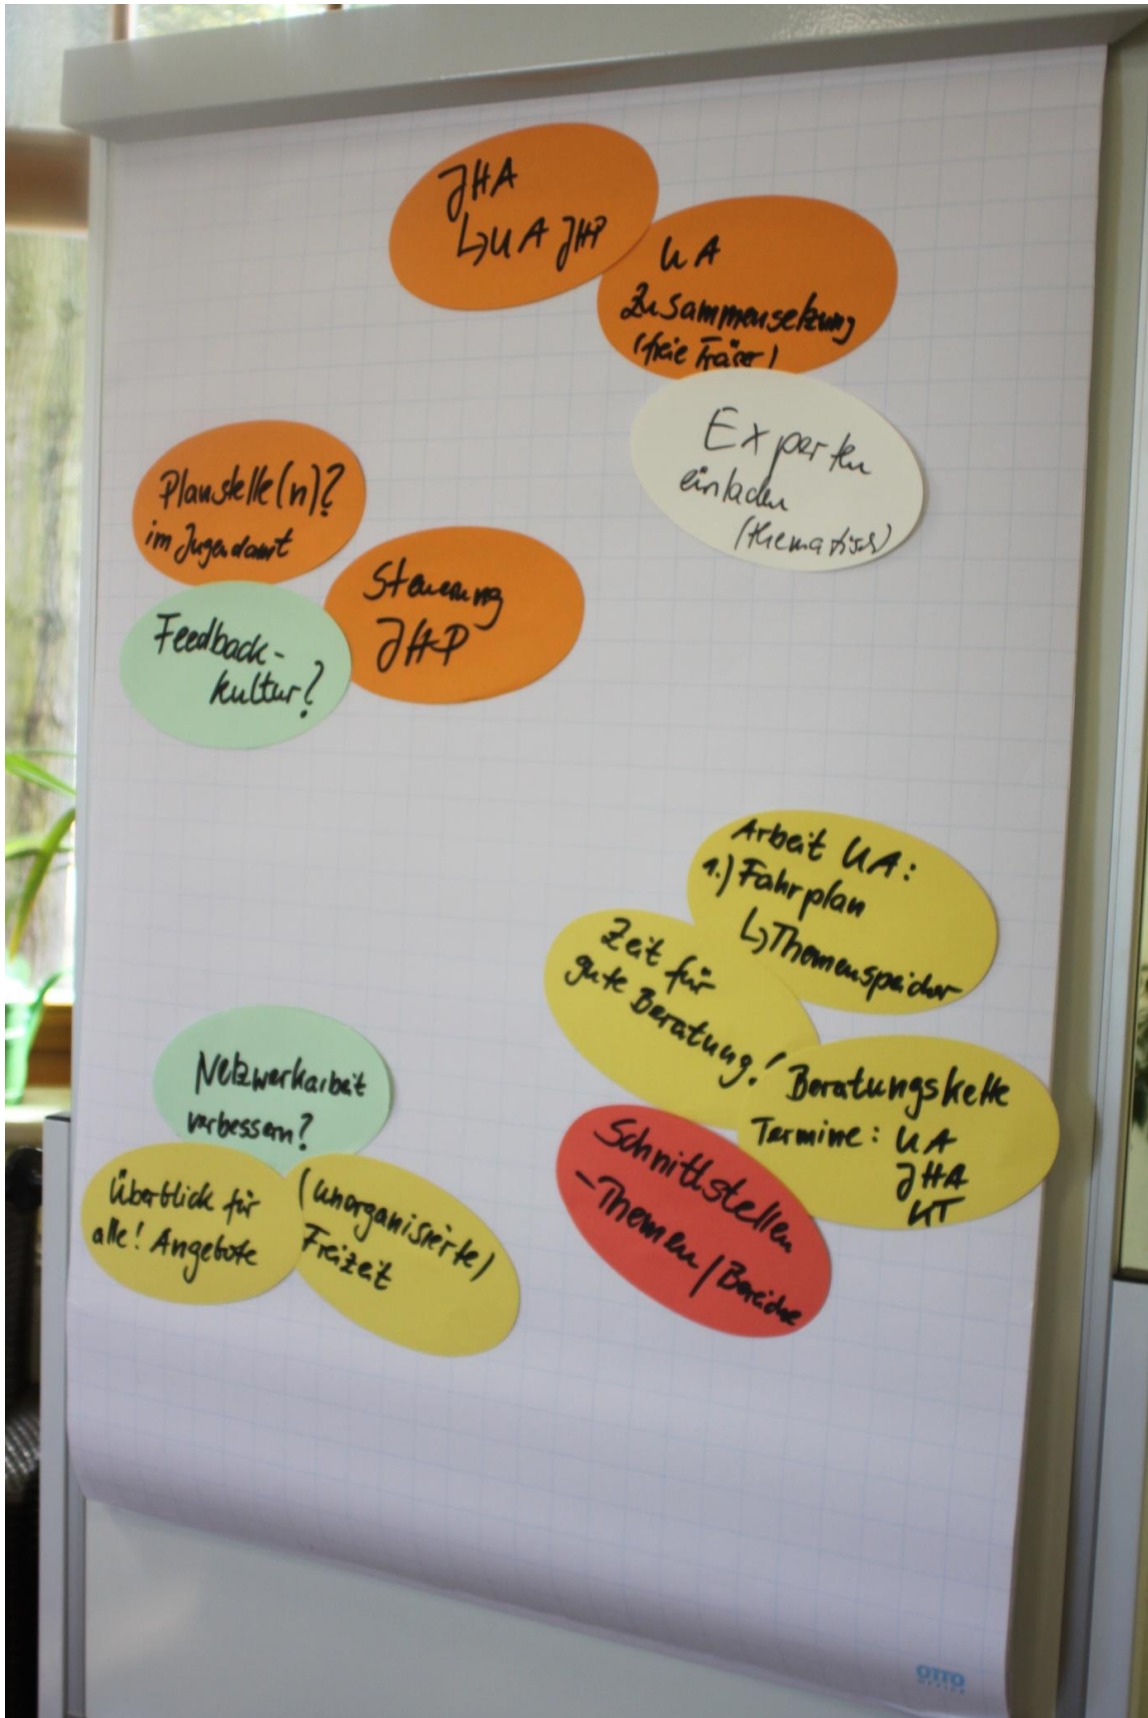 JHA
↳ UA JHP
UA
Zusammensetzung
(freie Träger)
Experten
einladen
(thematisch)
Planstelle(n)?
im Jugendamt
Steuerung
JHP
Feedback-
kultur?
Arbeit UA:
1.) Fahrplan
↳ Themenspeicher
Zeit für
gute Beratung!
Beratungskette
Termine: UA
JHA
KT
Schnittstellen
- Themen / Bereiche
Netzwerkarbeit
verbessern?
Überblick für
alle! Angebote
(unorganisierte)
Freizeit
OTTO
OFFICE